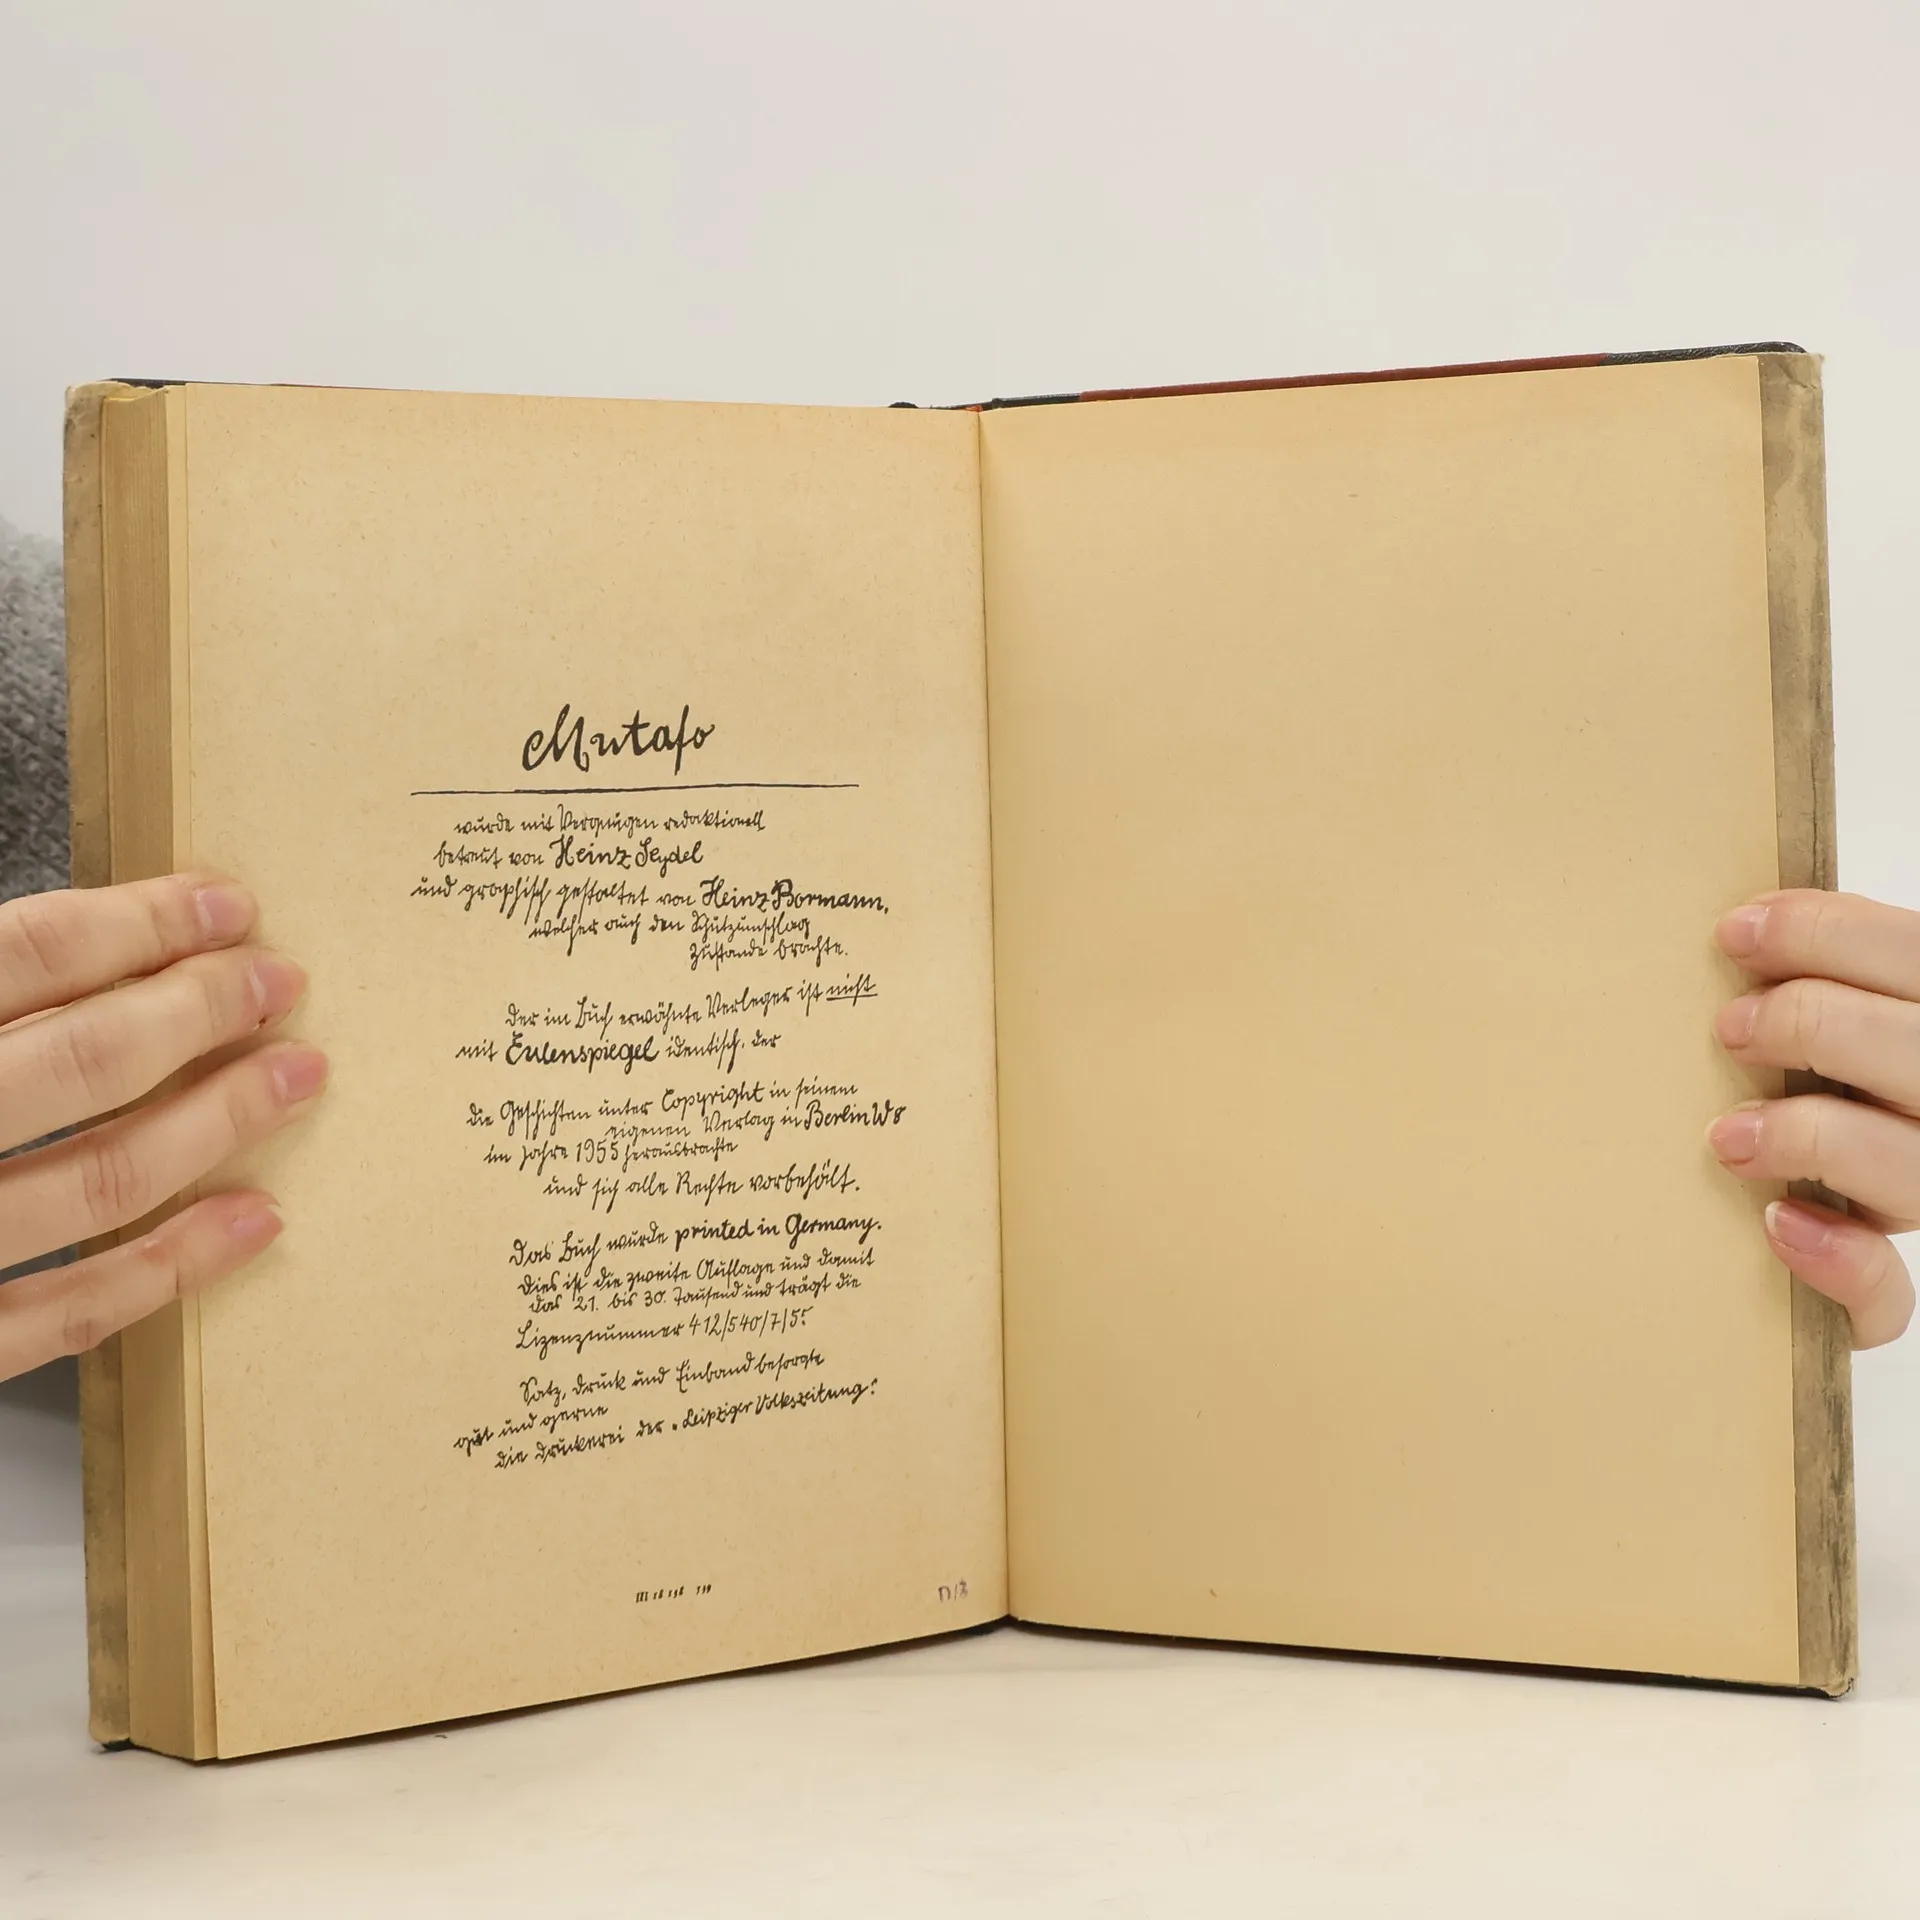 Mutafo
wurde mit Vergnügen redaktionell
betreut von Heinz Seydel
und graphisch gestaltet von Heinz Bormann,
welcher auch den Schutzumschlag
zustande brachte.
Der im Buch erwähnte Verleger ist nicht
mit Eulenspiegel identisch, der
die Geschichten unter Copyright in seinem
eigenen Verlag in Berlin W8
im Jahre 1955 herausbrachte
und sich alle Rechte vorbehält.
Das Buch wurde printed in Germany.
Dies ist die zweite Auflage und damit
das 21. bis 30. Tausend und trägt die
Lizenznummer 412/540/7/55
Satz, Druck und Einband besorgte
gut und gerne
die Druckerei der „Leipziger Volkszeitung“
III 18 138